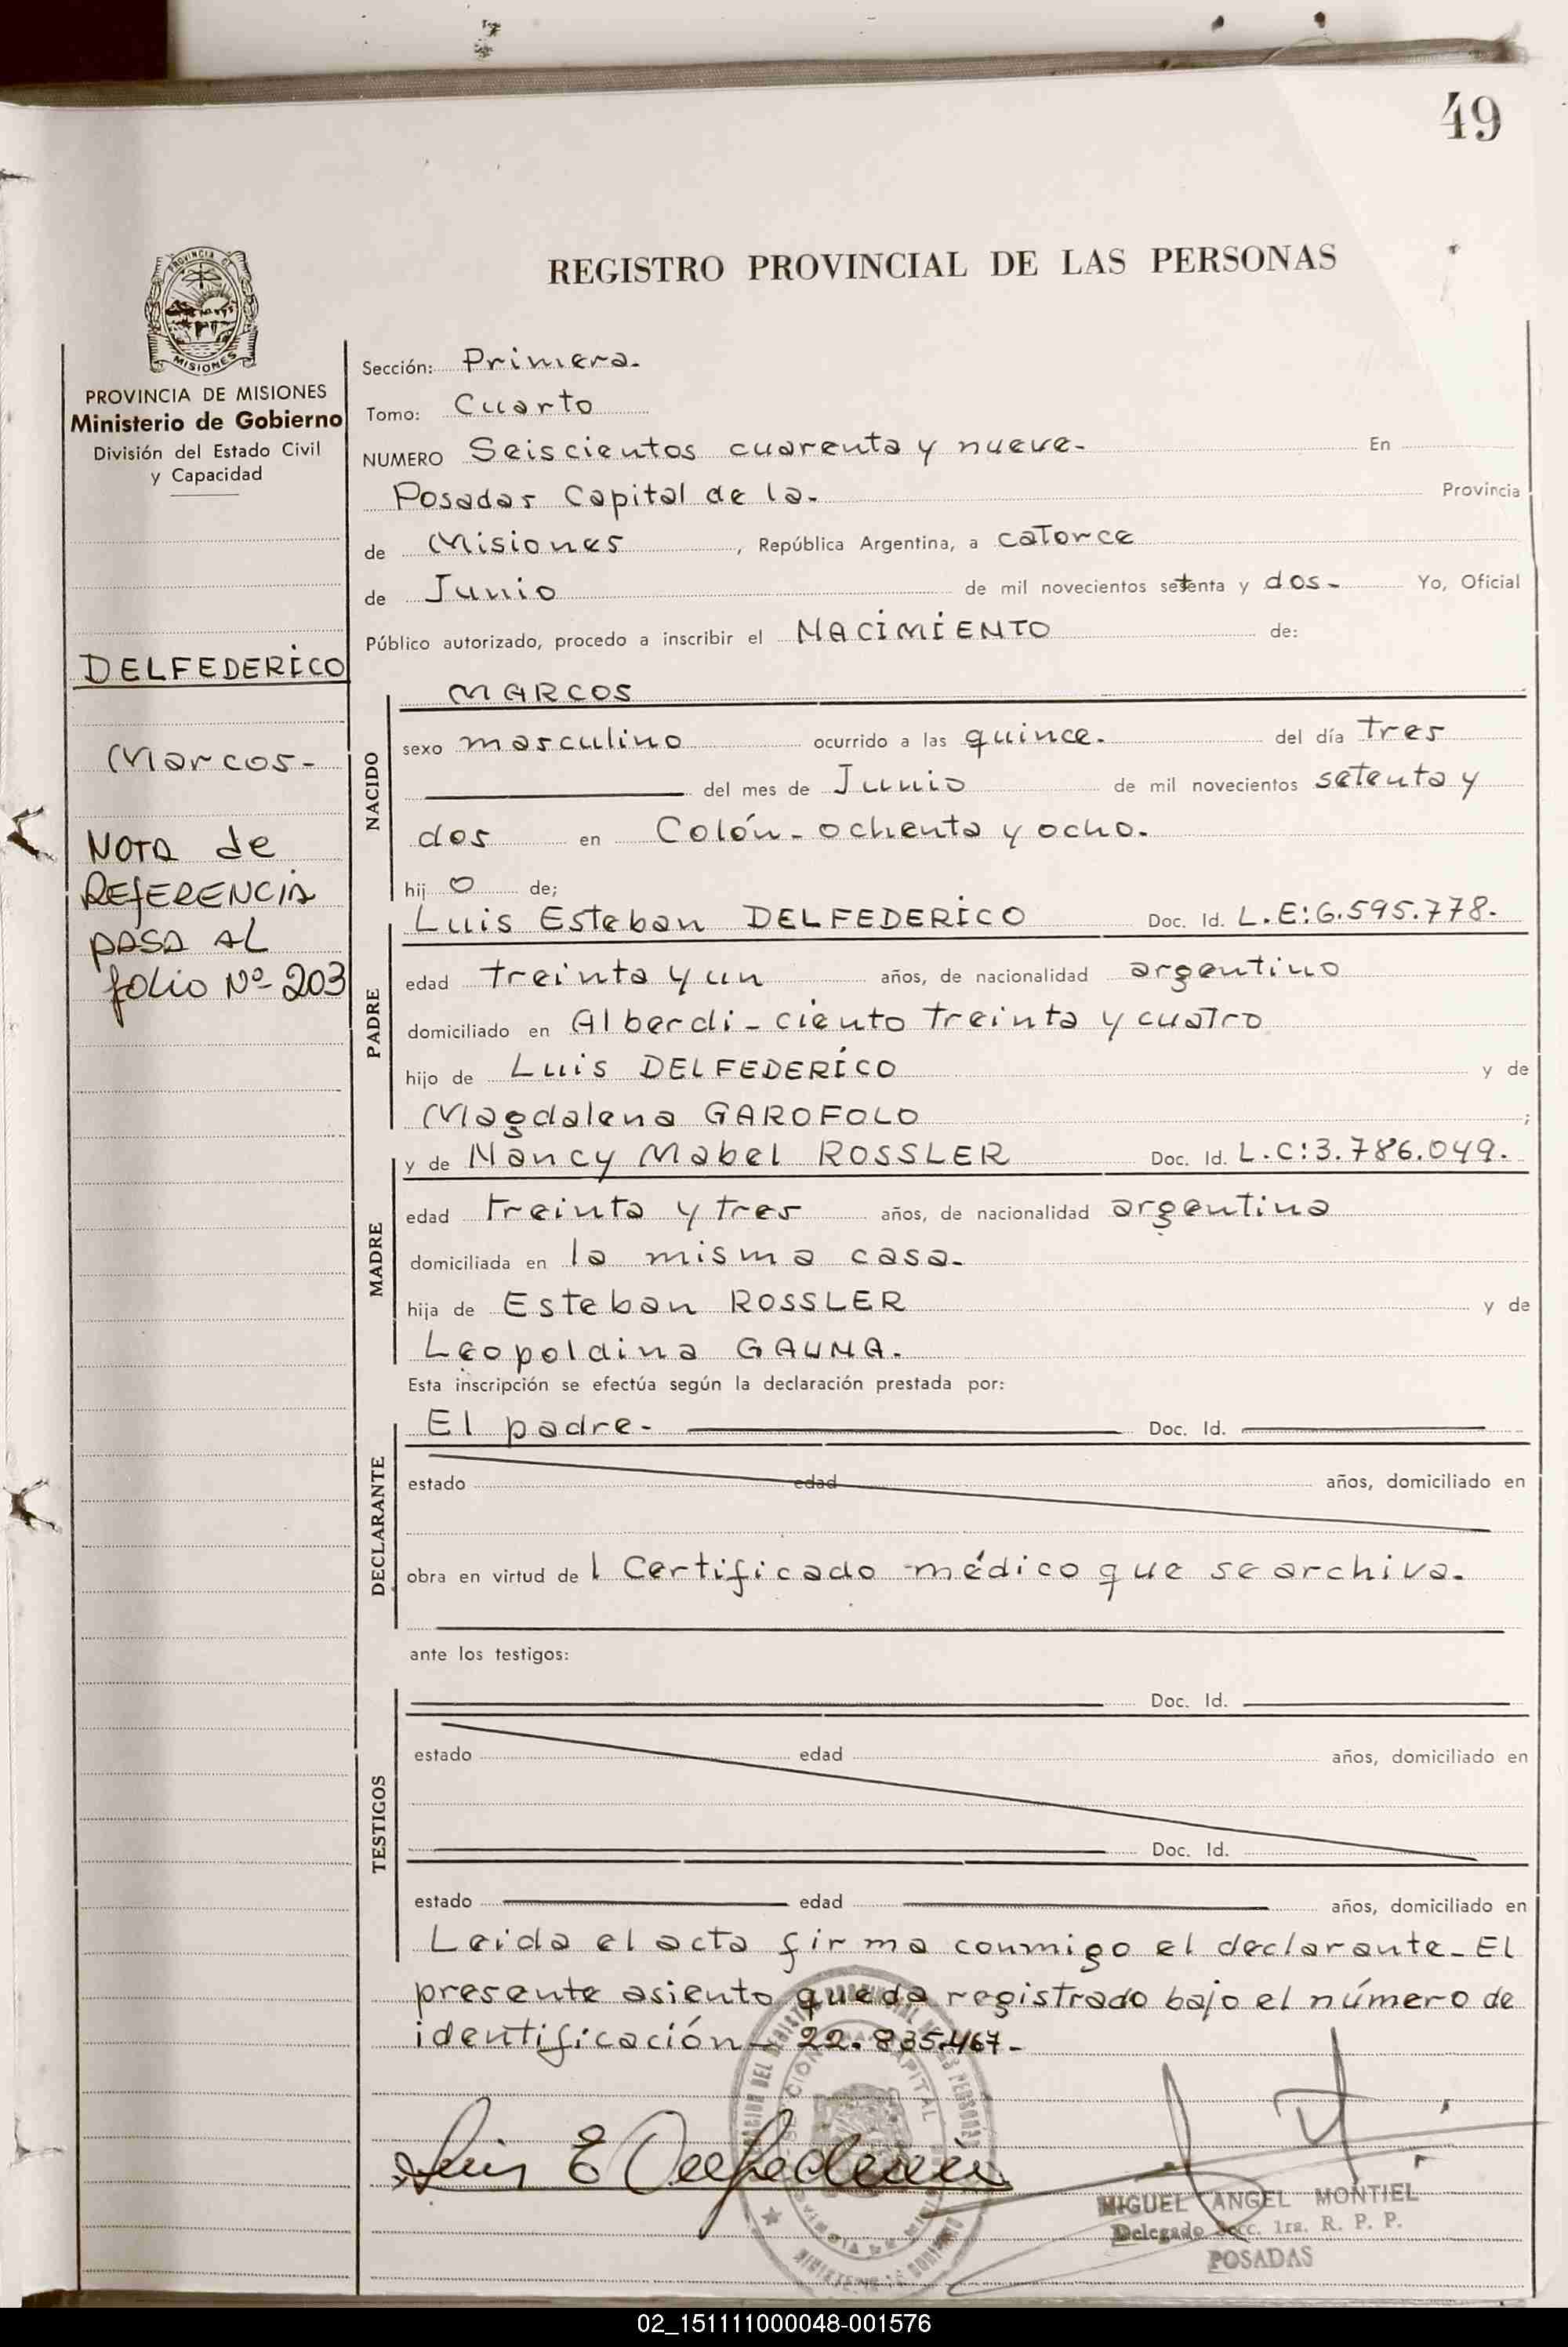 49
REGISTRO PROVINCIAL DE LAS PERSONAS
PROVINCIA DE MISIONES
Ministerio de Gobierno
División del Estado Civil
y Capacidad
DELFEDERICO
Marcos-
NOTA de
REFERENCIA
PASA AL
folio Nº 203
Sección: Primera.
Tomo: Cuarto
NUMERO Seiscientos cuarenta y nueve- En
Posadas Capital de la. Provincia
de Misiones, República Argentina, a catorce
de Junio de mil novecientos setenta y dos- Yo, Oficial
Público autorizado, procedo a inscribir el NACIMIENTO de:
NACIDO
MARCOS
sexo masculino ocurrido a las quince. del día tres
del mes de Junio de mil novecientos setenta y
dos en Colón- ochenta y ocho.
hij o de;
PADRE
Luis Esteban DELFEDERICO Doc. Id. L.E:6.595.778.
edad treinta y un años, de nacionalidad argentino
domiciliado en Alberdi- ciento treinta y cuatro
hijo de Luis DELFEDERICO y de
Magdalena GAROFOLO ;
MADRE
y de Nancy Mabel ROSSLER Doc. Id. L.C:3.786.049.
edad treinta y tres años, de nacionalidad argentina
domiciliada en la misma casa.
hija de Esteban ROSSLER y de
Leopoldina GAUNA.
Esta inscripción se efectúa según la declaración prestada por:
DECLARANTE
El padre- Doc. Id.
estado edad años, domiciliado en
obra en virtud de l Certificado médico que se archiva.
ante los testigos:
TESTIGOS
Doc. Id.
estado edad años, domiciliado en
Doc. Id.
estado edad años, domiciliado en
Leida el acta firma conmigo el declarante- El
presente asiento queda registrado bajo el número de
identificación- 22.835.467-
Luis E Delfederico
MIGUEL ANGEL MONTIEL
Delegado Secc. 1ra. R. P. P.
POSADAS
02_151111000048-001576